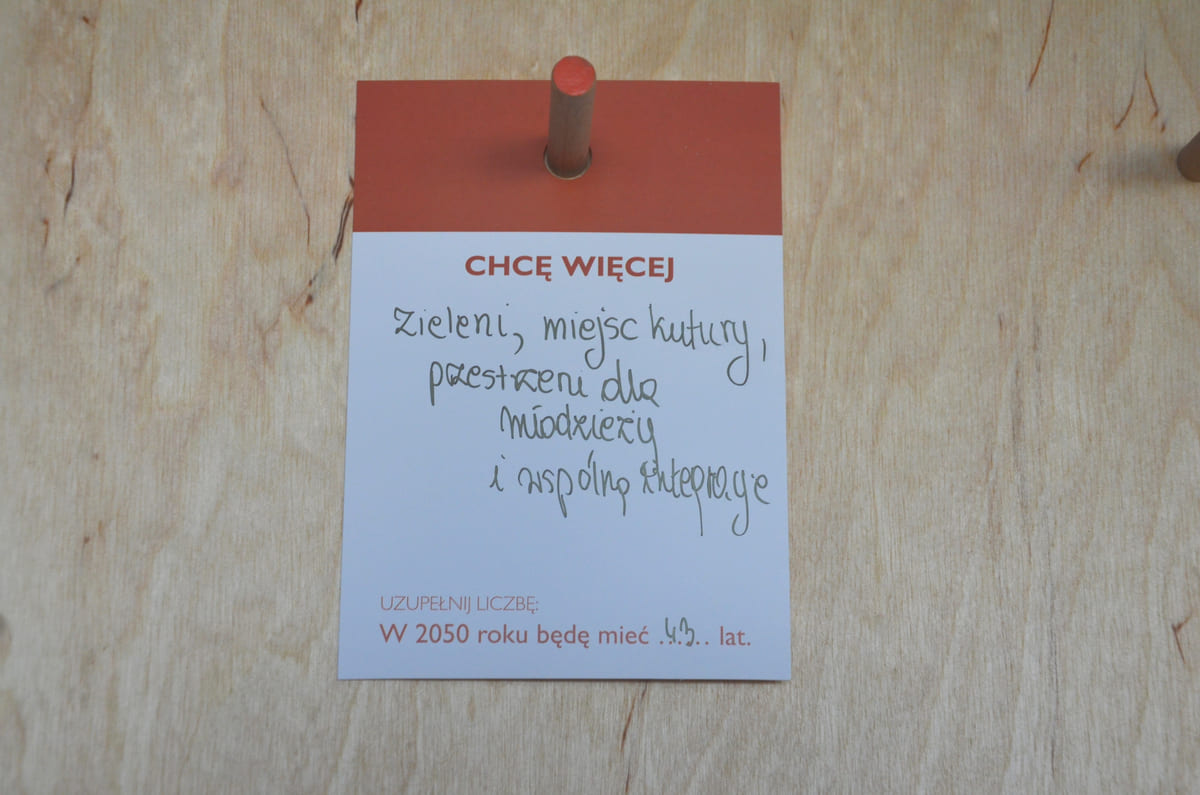 CHCĘ WIĘCEJ
zieleni, miejsc kutury,
przestrzeni dla
młodzieży
i wspólną integracje
UZUPEŁNIJ LICZBĘ:
W 2050 roku będę mieć .43.. lat.